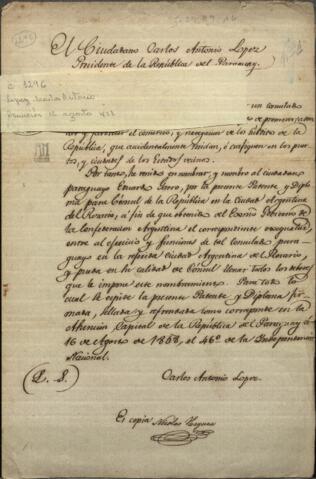 El Ciudadano Carlos Antonio Lopez
Presidente de la República del Paraguay.
C 3296
Lopez, Carlos Antonio
Asunción 16 agosto 1858
un consulado
de promover, acomo
dar y fomentar el comercio, y navegacion de los súbditos de la
República, que accidentalmente residan, ó trafiquen en los puer
tos, y ciudades de los Estados vecinos.
Por tanto, he venido en nombrar, y nombro al ciudadano
paraguayo por la presente Patente y Diplo
ma para Consul de la República en la Ciudad Argentina
del Rosario, á fin de que obtenido del Exmo Gobierno de
la Confederacion Argentina el correspondiente exequatur,
entre al ejercicio y funciones de tal Consulado para
guayo en la referida ciudad Argentina del Rosario,
y pueda en su calidad de Consul llenar todos los deberes
que le impone este nombramiento. Para todo lo
cual le expide la presente Patente y Diploma fir
mada, sellada y refrendada como corresponde en la
Asuncion Capital de la República del Paraguay á
16 de Agosto de 1858, el 46º de la Independencia
Nacional.
(L. S.) Carlos Antonio Lopez.
Es copia Nicolas Vasquez